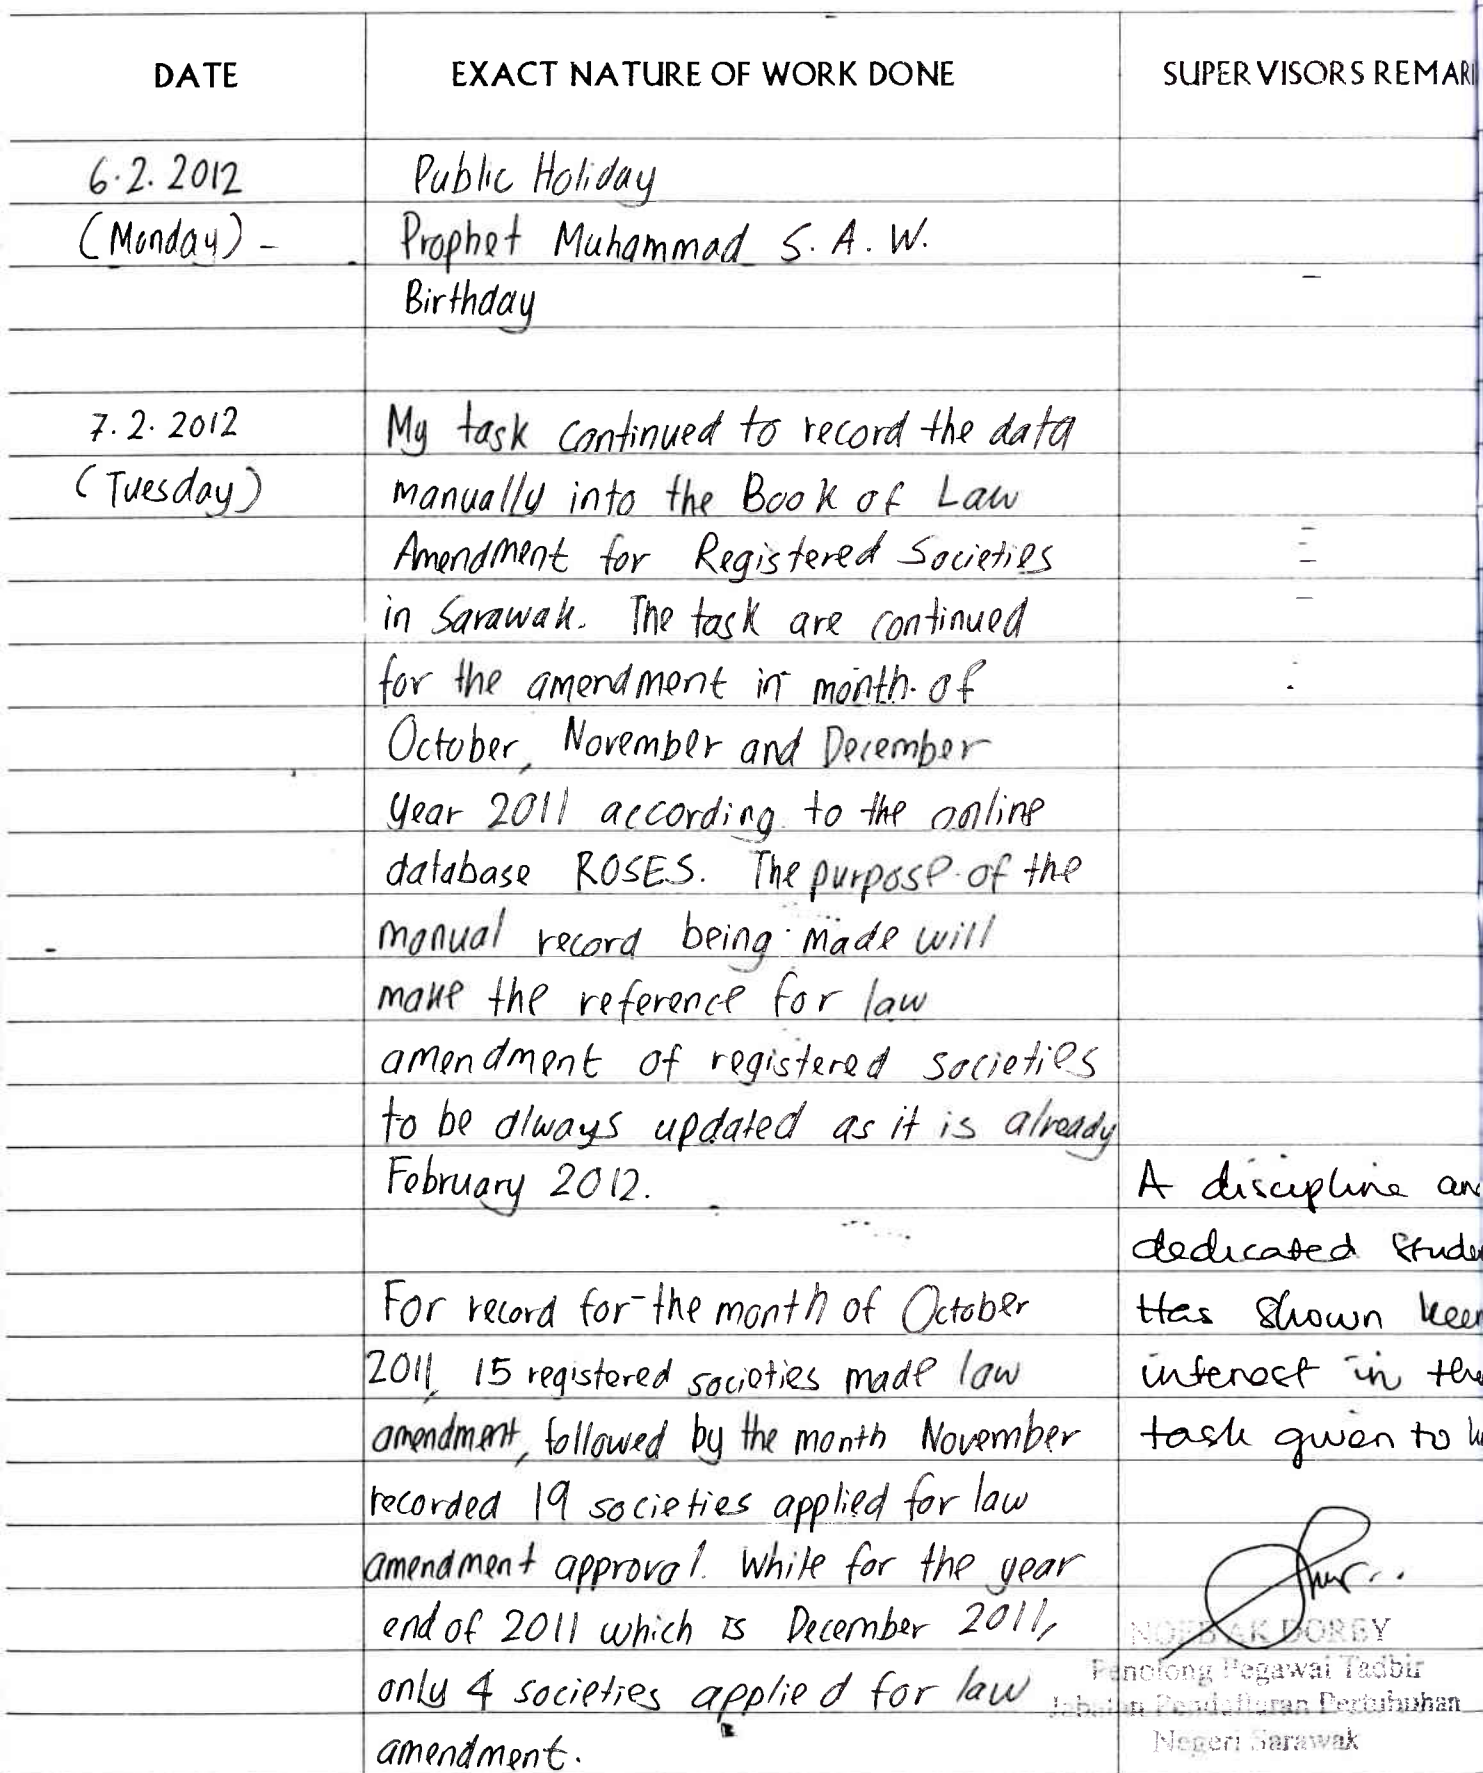 DATE EXACT NATURE OF WORK DONE SUPERVISORS REMAR
6.2.2012 Public Holiday
(Monday) - Prophet Muhammad S.A.W.
Birthday
7.2.2012 My task continued to record the data
(Tuesday) manually into the Book of Law
Amendment for Registered Societies
in Sarawak. The task are continued
for the amendment in month of
October, November and December
year 2011 according to the online
database ROSES. The purpose of the
manual record being made will
make the reference for law
amendment of registered societies
to be always updated as it is already
February 2012.
For record for the month of October
2011, 15 registered societies made law
amendment, followed by the month November
recorded 19 societies applied for law
amendment approval. While for the year
end of 2011 which is December 2011,
only 4 societies applied for law
amendment.
A discipline an
dedicated stude
Has shown keen
interest in the
task given to h
DORBY
Penolong Pegawai Tadbir
Jabatan Pendaftaran Pertubuhan
Negeri Sarawak